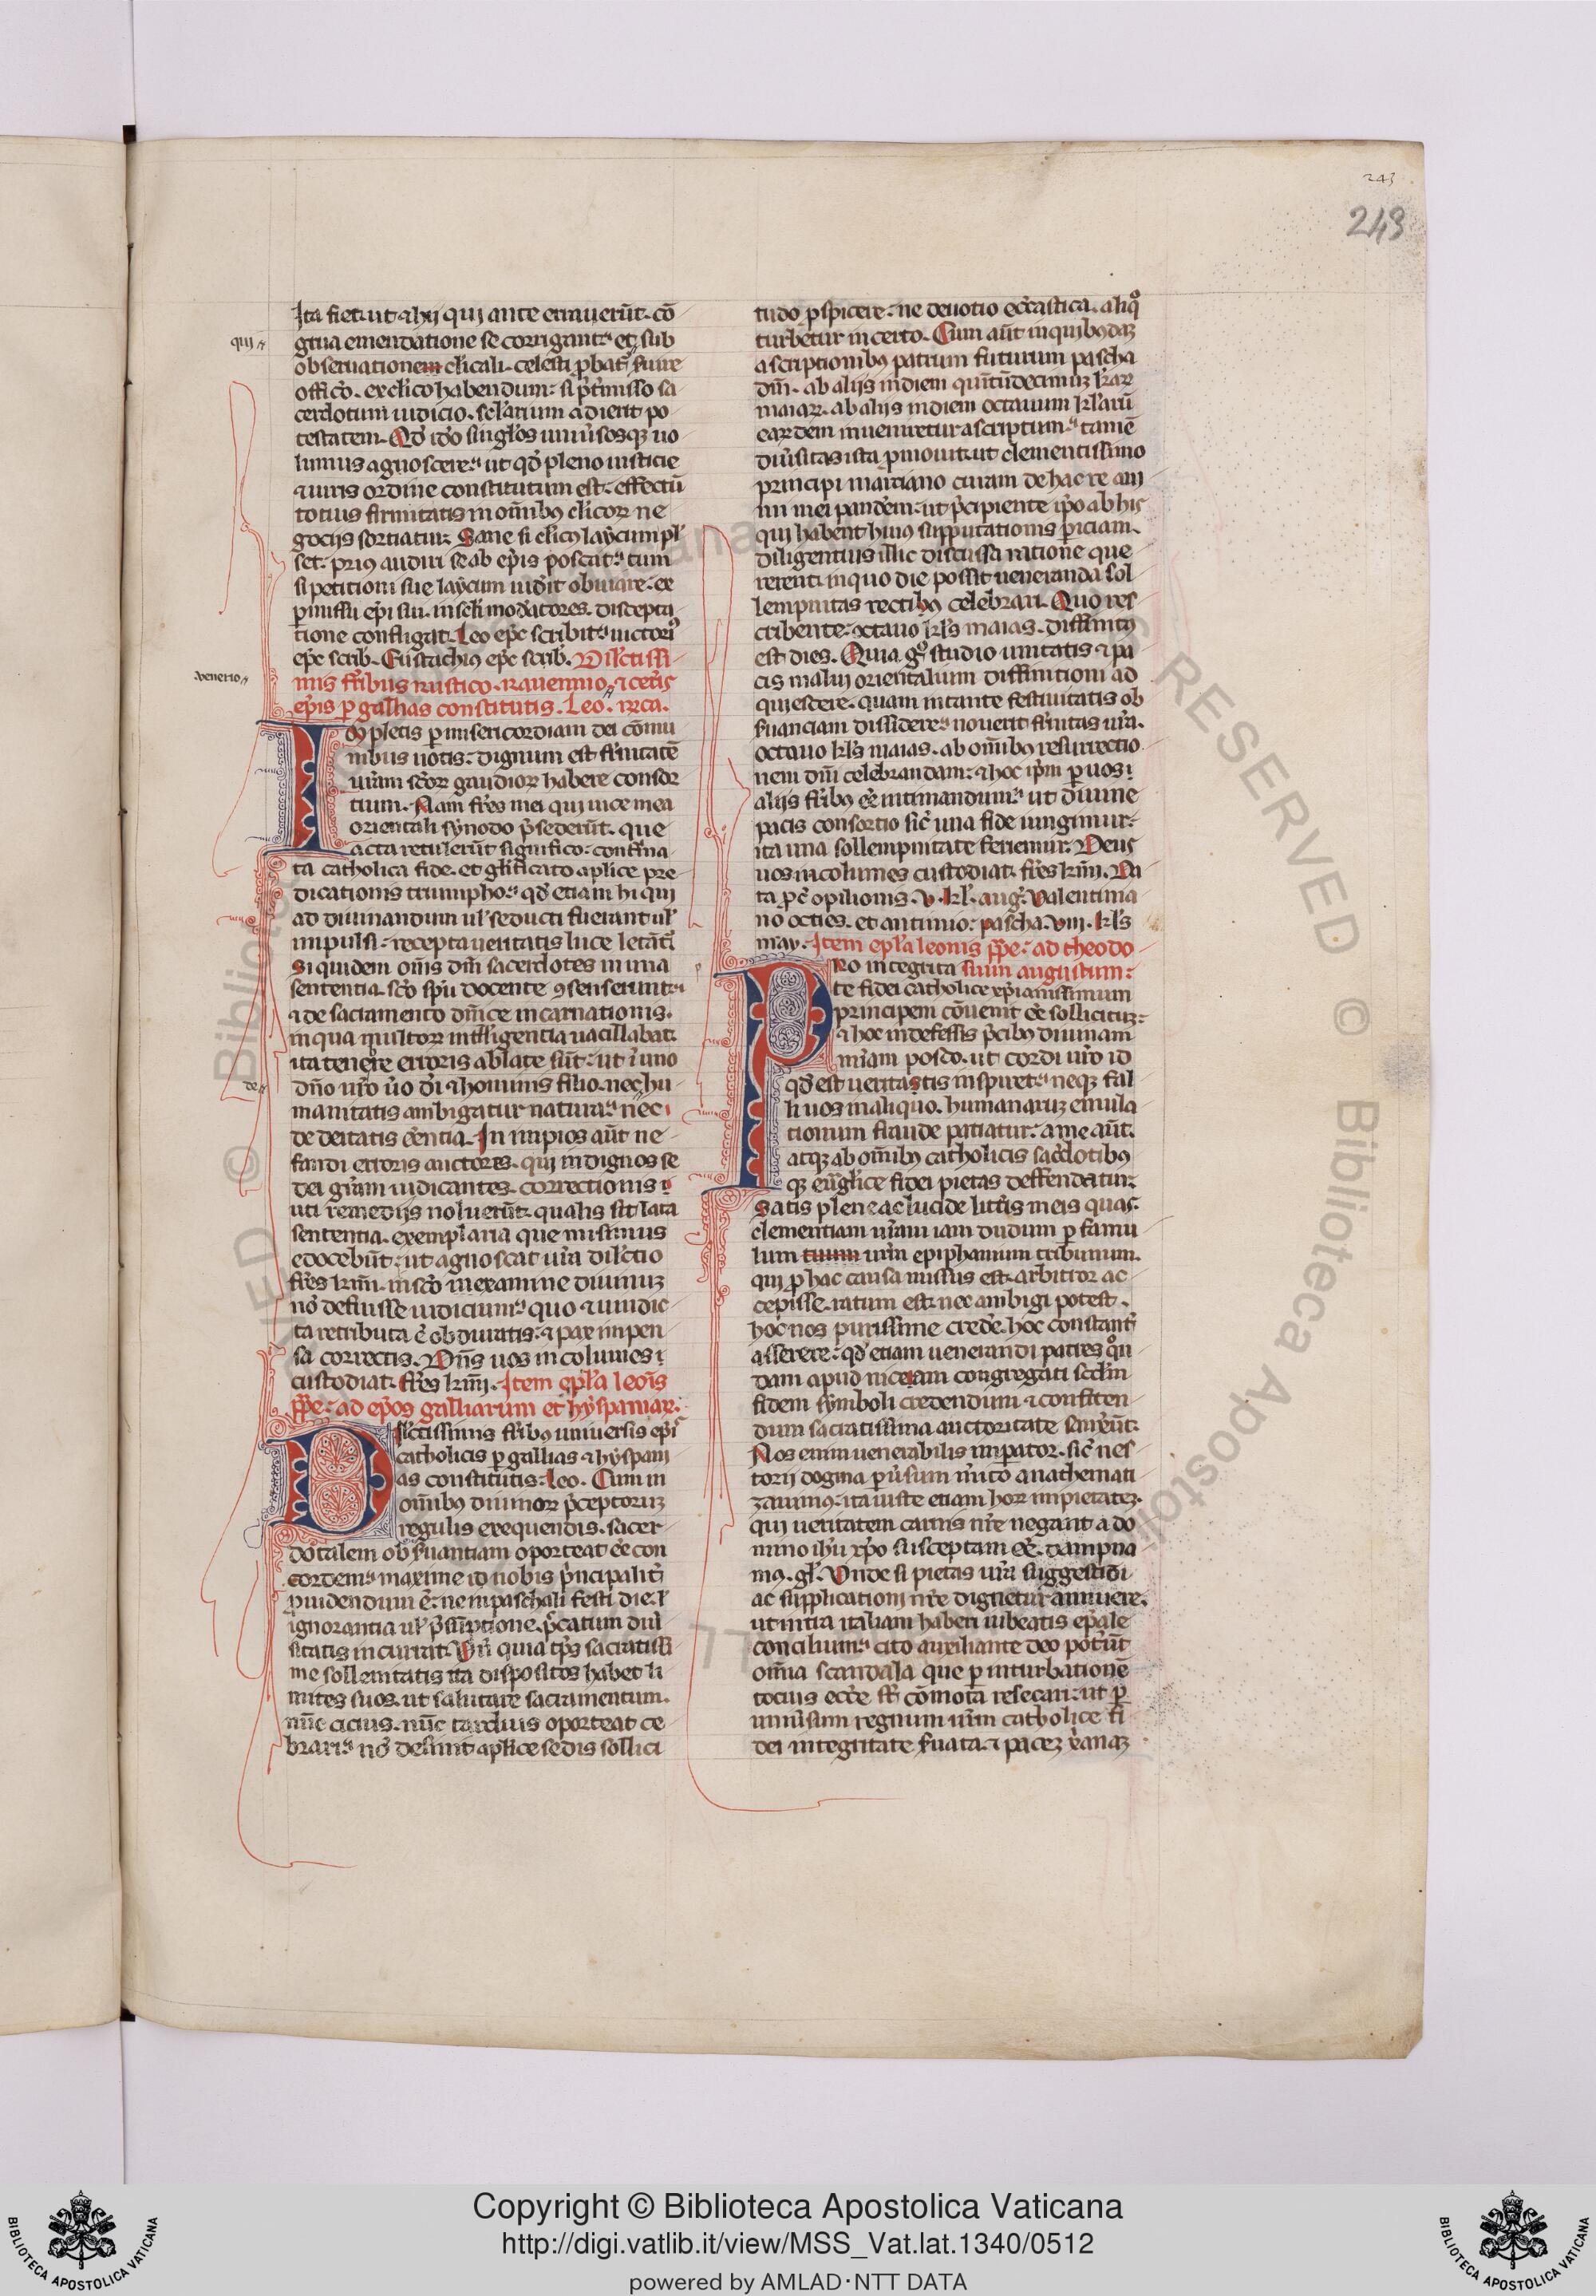 243
243
Ita fiet. ut ⁊ hij qui ante errauerūt. cō
qui
grua emendatione se corrigant. et sub
obseruationem cl̄icali. celesti ꝓbat̄ fuire
offico. ex cl̄ico habendum. si p̄t̄misso sa
cerdotum iudicio. sclarium adierit po
testatem. Qd̄ id̄o singlos uniu̓sosqꝫ uo
lumus agnoscere. ut qd̄ pleno iusticie
⁊ iuris ordine constitutum est. effectū
totius firmitatis in om̄ibꝰ cl̄icoꝝ ne
gocijs sortiatur. Sane si cl̄icꝰ laycum pl̄
set. priꝰ audiri se ab ep̄is poscat. tum
si petitioni sue laycum uid̄it obuiare. ex
ꝑmissu ep̄i sui. in sc̄li mod̄atores. discepta
tione confligat. Leo ep̄c scribit. uictoriꝰ
ep̄c scrib̄. Eustachiꝰ ep̄c scrib̄. Dilctissi
venerio
mis fr̄ibus rustico. rauennio. ⁊ cet̄is
ep̄is ꝑ gallias constitutis. Leo.
Impletis ꝑ misericordiam dei cōmu
nibus uotis. dignum est fr̄nitatē
ur̄am sc̄oꝝ gaudioꝝ habere consor
tium. Nam fr̄es mei qui uice mea
orientali synodo p̄sederūt. que
acta retulerūt significo. confirma
ta catholica fide. et gl̄ificato aplice pre
dicationis triumpho. qd̄ etiam hi qui
ad diuinandum ul̄ seducti fuerant ul̄
impulsi. recepta ueritatis luce letāt̄
si quidem om̄s dn̄i sacerdotes in una
sententia. sc̄o sp̄u docente ꝯsenserunt
⁊ de sacramento dn̄ice incarnationis.
in qua multoꝝ intelligentia uacillabat.
ita tenebre erroris ablate sūt. ut ī uno
de
dn̄o nr̄o u̓o d̄i ⁊ hominis filio. nec hu
manitatis ambigatur natura. nec
de deitatis ēentia. In impios aūt ne
fandi erroris auctores. qui indignos se
dei gr̄am iudicantes. correctionis
uti remedijs noluerūt. qualis sit lata
sententia. exemplaria que misimus
edocebūt. ut agnoscat ur̄a dilctio
fr̄es kr̄mi. in sc̄o in examine diuinuꝫ
nō defuisse iudicium. quo ⁊ uindic
ta retributa ē obduratis. ⁊ pax impen
sa correctis. Dn̄s uos incolumes
custodiat. fr̄es kr̄mi. Item epl̄a leōis
pp̄e. ad ep̄os galliarum et hyspaniaꝝ.
Dilctissimis fr̄ibꝰ uniuersis ep̄is
catholicis ꝑ gallias ⁊ hyspani
as constitutis. Leo. Cum in
om̄ibꝰ diuinoꝝ p̄ceptoruꝫ
regulis exequendis. sacer
dotalem obs̄uantiam oporteat ēe con
cordem. maxime id nobis p̄ncipalit̄
ꝓuidendum ē. ne in paschali festi die. ł
ignorantia ul̄ p̄sūptione. p̄catum diu̓
sitatis incurrat. Un̄ quia tp̄s sacratissi
me sollemitatis ita dispositos habet li
mites suos. ut salutare sacramentum.
nūc citius. nūc tardius oporteat ce
brari. nō desunt aplice sedis sollici
tudo ꝑspicere. ne deuotio ecc̄astica. aliqͦ
turbetur incerto. Cum aūt in quibꝰdaꝫ
ascriptionibꝰ patrum futurum pascha
dn̄i. ab alijs in diem quītūdecimuꝫ kl̄aꝝ
maiaꝝ. ab alijs in diem octauum kl̄arū
earꝝdem inueniretur ascriptum. tamē
diu̓sitas ista ꝑmouit. ut clementissimo
principi martiano curam de hac re ani
mi mei pand̄em. ut p̄cipiente ip̄o ab his
qui habent huiꝰ supputationis ꝑiciam.
diligentius illic discussa ratione que
rerent. in quo die possit ueneranda sol
lempnitas rectiꝰ celebrari. Quo res
cribente. octauo kl̄s maias. diffinitꝰ
est dies. Quia gͦ studio unitatis ⁊ pa
cis malui orientalium diffinitioni ad
quiescere. quam in tante festiuitatis ob
s̄uanciam dissidere. nouerit fr̄nitas ur̄a.
octauo kl̄s maias. ab om̄ibꝰ resurrectio
nem dn̄i celebrandam. ⁊ hoc ip̄m ꝑ uos
alijs fr̄ibꝰ ēe intimandum. ut diuine
pacis consortio sic̄ una fide iungimur.
ita una sollempnitate feriemur. Deus
uos incolumes custodiat. fr̄es kr̄mi. Da
ta pc̄ opilionis. v. kl̄. aug̓. Valentinia
no octies. et antimio. pascha. viii. kl̄s
may. Item epl̄a leonis pp̄e. ad theodo
sium augustum.
Pro integrita
te fidei catholice xp̄ianissimum
principem cōuenit ēe sollicituꝫ.
⁊ hoc indefessis p̄cibꝰ diuinam
mīam posco. ut cordi ur̄o id
qd̄ est ueritatis inspiret. neqꝫ fal
li uos in aliquo. humanaruꝫ emula
tionum fraude patiatur. a me aūt.
atqꝫ ab om̄ibꝰ catholicis sac̄dotibꝰ
qꝫ eun̄glice fidei pietas deffendatur.
Satis plene ac lucide litt̄is meis quas
clementiam ur̄am iam dudum ꝑ famu
lum tuum ur̄m epiphanium tribunum.
qui ꝓ hac causa missus est. arbitror ac
cepisse. ratum est. nec ambigi potest.
hoc nos purissime cred̄e. hoc constant̄
asserere. qd̄ etiam uenerandi patres qͦn
dam apud niceam congregati scd̄m
fidem symboli credendum. ⁊ confiten
dum sacratissima auctoritate sanx̄ūt.
Nos enim uenerabilis imꝑator. sic̄ nes
torij dogma ꝑu̓sum m̄ito anathemati
zauimꝰ. ita iuste etiam hoꝝ impietateꝫ.
qui ueritatem carnis nr̄e negant a do
mino ih̄u xp̄o susceptam ēe. dampna
mꝰ. Unde si pietas ur̄a suggestioni
ac supplicationi nr̄e dignetur annuere.
ut intra italiam haberi iubeatis ep̄ale
concilium. cito auxiliante deo pot̄ūt
om̄ia scandala que ꝑ inturbationē
tocius ecc̄e st̄ cōmota resecari. ut ꝑ
uniu̓sum regnum ur̄m catholice fi
dei integritate s̄uata. ⁊ paceꝫ xanaꝫ
Copyright © Biblioteca Apostolica Vaticana
http://digi.vatlib.it/view/MSS_Vat.lat.1340/0512
powered by AMLAD·NTT DATA
BIBLIOTECA APOSTOLICA VATICANA
BIBLIOTECA APOSTOLICA VATICANA